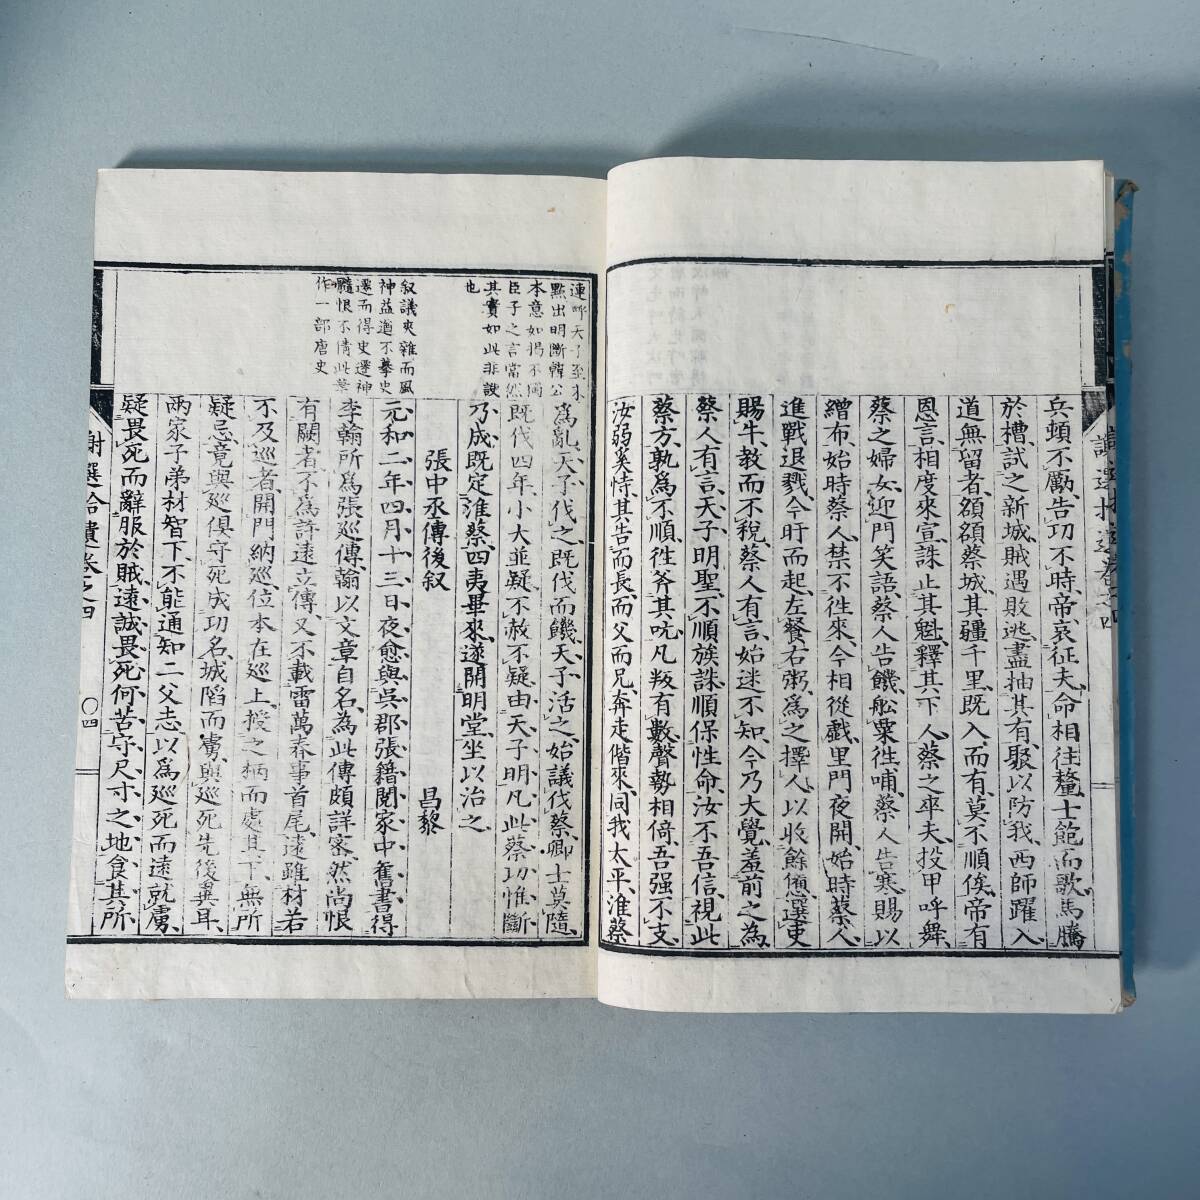 兵頓不勵告功不時帝哀征夫命相往釐士飽而歌馬騰
於槽試之新城賊遇敗逃盡抽其有聚以防我西師躍入
道無留者頟頟蔡城其疆千里既入而有莫不順俟帝有
恩言相度來宣誅止其魁釋其下人蔡之卒夫投甲呼舞
蔡之婦女迎門笑語蔡人告饑舩粟徃哺蔡人告寒賜以
繒布始時蔡人禁不徃來今相從戲里門夜開始時蔡人
進戰退戮今旰而起左餐右粥為之擇人以收餘憊選吏
賜牛教而不稅蔡人有言始迷不知今乃大覺羞前之為
蔡人有言天子明聖不順族誅順保性命汝不吾信視此
蔡方孰為不順徃斧其吭凡叛有數聲勢相倚吾强不支
汝弱奚恃其告而長而父而兄奔走偕來同我太平淮蔡
連呼天子至末
點出明斷韓公
本意如揭不獨
臣子之言當然
其實如此非諛
也
為亂天子伐之既伐而饑天子活之始議伐蔡卿士莫隨
既伐四年小大並疑不赦不疑由天子明凡此蔡功惟斷
乃成既定淮蔡四夷畢來遂開明堂坐以治之
張中丞傳後叙 昌黎
叙議夾雜而風
神益遒不摹史
遷而得史遷神
髓恨不倩此筆
作一部唐史
元和二年四月十三日夜愈與吳郡張籍閱家中舊書得
李翰所為張巡傳翰以文章自名為此傳頗詳密然尚恨
有闕者不為許遠立傳又不載雷萬春事首尾遠雖材若
不及巡者開門納巡位本在巡上授之柄而處其下無所
疑忌竟與巡俱守死成功名城陷而虜與巡死先後異耳
兩家子弟材智下不能通知二父志以為巡死而遠就虜
疑畏死而辭服於賊遠誠畏死何苦守尺寸之地食其所
謝選拾遺卷之四 〇四